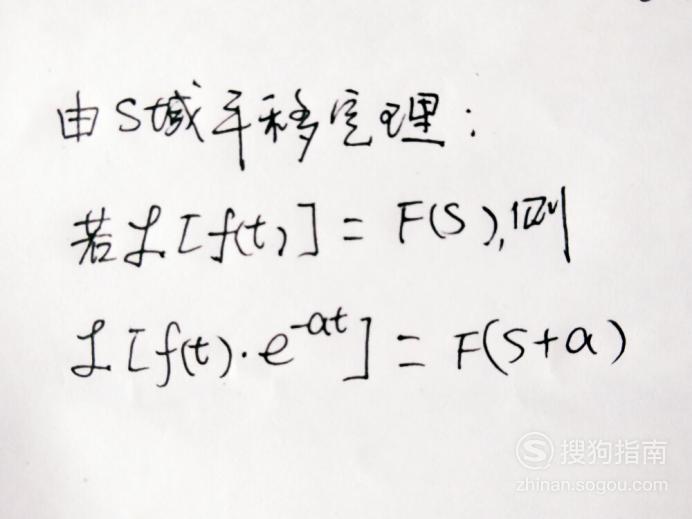 由S域平移定理：
若ℒ[f(t)] = F(S),则
ℒ[f(t)·e^{-at}] = F(S+a)
搜狗指南
zhinan.sogou.com